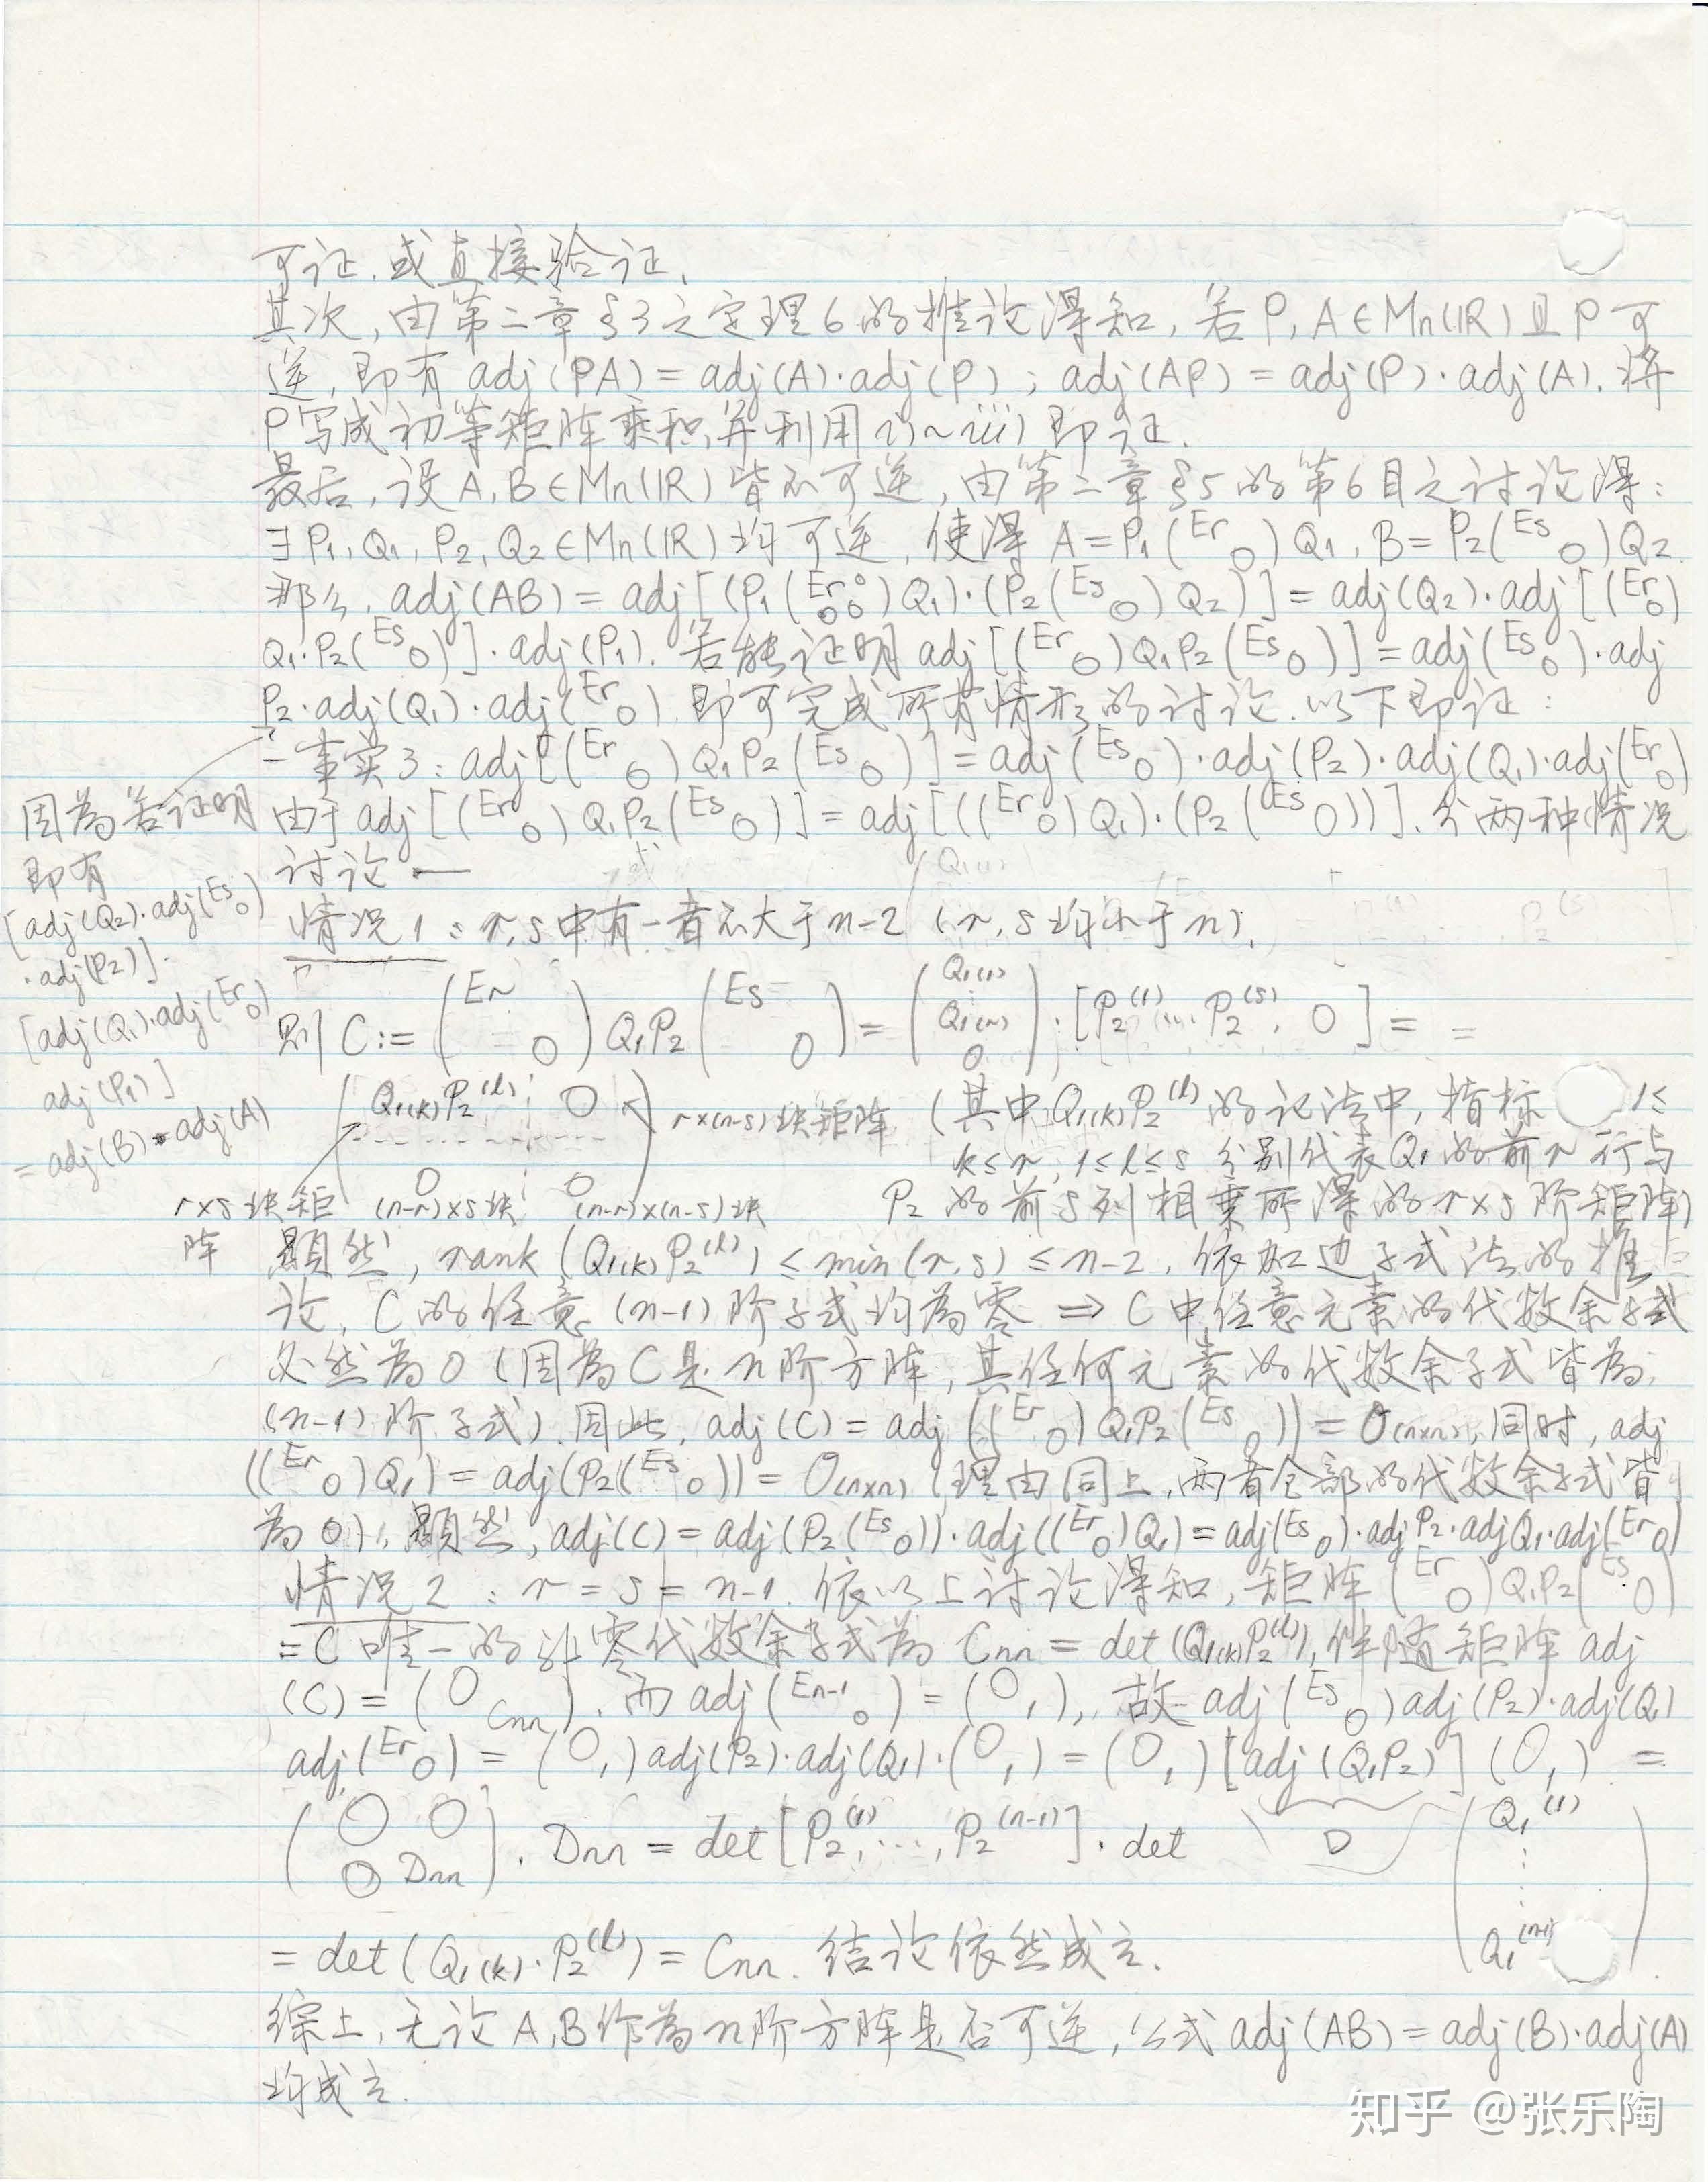 可证.或直接验证.
其次,由第二章§3之定理6的推论得知,若P,A∈Mn(IR)且P可
逆,即有 adj(PA)=adj(A)·adj(P); adj(AP)=adj(P)·adj(A).将
P写成初等矩阵乘积,并利用i)~iii)即证.
最后,设A,B∈Mn(IR)皆不可逆,由第二章§5的第6目之讨论得:
∃P₁,Q₁,P₂,Q₂∈Mn(IR)均可逆,使得 A=P₁(Er 0)Q₁,B=P₂(Es 0)Q₂
那么,adj(AB)=adj[(P₁(Er 0 0 0)Q₁)·(P₂(Es 0)Q₂)]=adj(Q₂)·adj[(Er 0)
Q₁·P₂(Es 0)]·adj(P₁).若能证明 adj[(Er 0)Q₁P₂(Es 0)]=adj(Es 0)·adj
P₂·adj(Q₁)·adj(Er 0).即可完成所有情形的讨论.以下即证:
-事实3:adj[(Er 0)Q₁P₂(Es 0)]=adj(Es 0)·adj(P₂)·adj(Q₁)·adj(Er 0)
因為若证明
即有
[adj(Q₂)·adj(Es 0)
·adj(P₂)]·
[adj(Q₁)·adj(Er 0)
adj(P₁)]
=adj(B)·adj(A)
由于 adj[(Er 0)Q₁P₂(Es 0)]=adj[((Er 0)Q₁)·(P₂(Es 0))].分两种情况
讨论一
情况1:r,s中有一者不大于n-2 (r,s均小于n).
则 C:=(Er 0)Q₁P₂(Es 0)=(Q₁(1) ⋮ Q₁(r) 0)·[P₂⁽¹⁾,…,P₂⁽ˢ⁾, 0]= =
(Q₁(k)P₂⁽ˡ⁾ 0 0 0) r×(n-s)块矩阵 (其中Q₁(k)P₂⁽ˡ⁾的记法中,指标 1≤
k≤r,1≤l≤s 分别代表Q₁的前r行与
r×s块矩阵 (n-r)×s块 (n-r)×(n-s)块 P₂的前s列相乘所得的r×s阶矩阵)
顯然,rank(Q₁(k)P₂⁽ˡ⁾)≤min(r,s)≤n-2,依加边子式法的推
论,C的任意(n-1)阶子式均為零 ⇒ C中任意元素的代数余子式
必然為0(因為C是n阶方阵,其任何元素的代数余子式皆為
(n-1)阶子式).因此,adj(C)=adj((Er 0)Q₁P₂(Es 0))=O(n×n),同时,adj
((Er 0)Q₁)=adj(P₂(Es 0))=O(n×n)(理由同上,两者全部的代数余子式皆
為0),顯然,adj(C)=adj(P₂(Es 0))·adj((Er 0)Q₁)=adj(Es 0)·adjP₂·adjQ₁·adj(Er 0)
情况2:r=s=n-1.依以上讨论得知,矩阵(Er 0)Q₁P₂(Es 0)
=C唯一的非零代数余子式為Cnn=det(Q₁(k)P₂⁽ˡ⁾),伴随矩阵adj
(C)=(0 Cnn).而adj(En-1 0)=(0 1),故 adj(Es 0)adj(P₂)·adj(Q₁)
adj(Er 0)=(0 1)adj(P₂)·adj(Q₁)·(0 1)=(0 1)[adj(Q₁P₂)](0 1)=
D
(0 0 0 Dnn). Dnn=det[P₂⁽¹⁾,…,P₂⁽ⁿ⁻¹⁾]·det(Q₁⁽¹⁾ ⋮ Q₁⁽ⁿ⁻¹⁾)
=det(Q₁(k)·P₂⁽ˡ⁾)=Cnn.结论依然成立.
综上,无论A,B作為n阶方阵是否可逆,公式adj(AB)=adj(B)·adj(A)
均成立.
知乎 @张乐陶